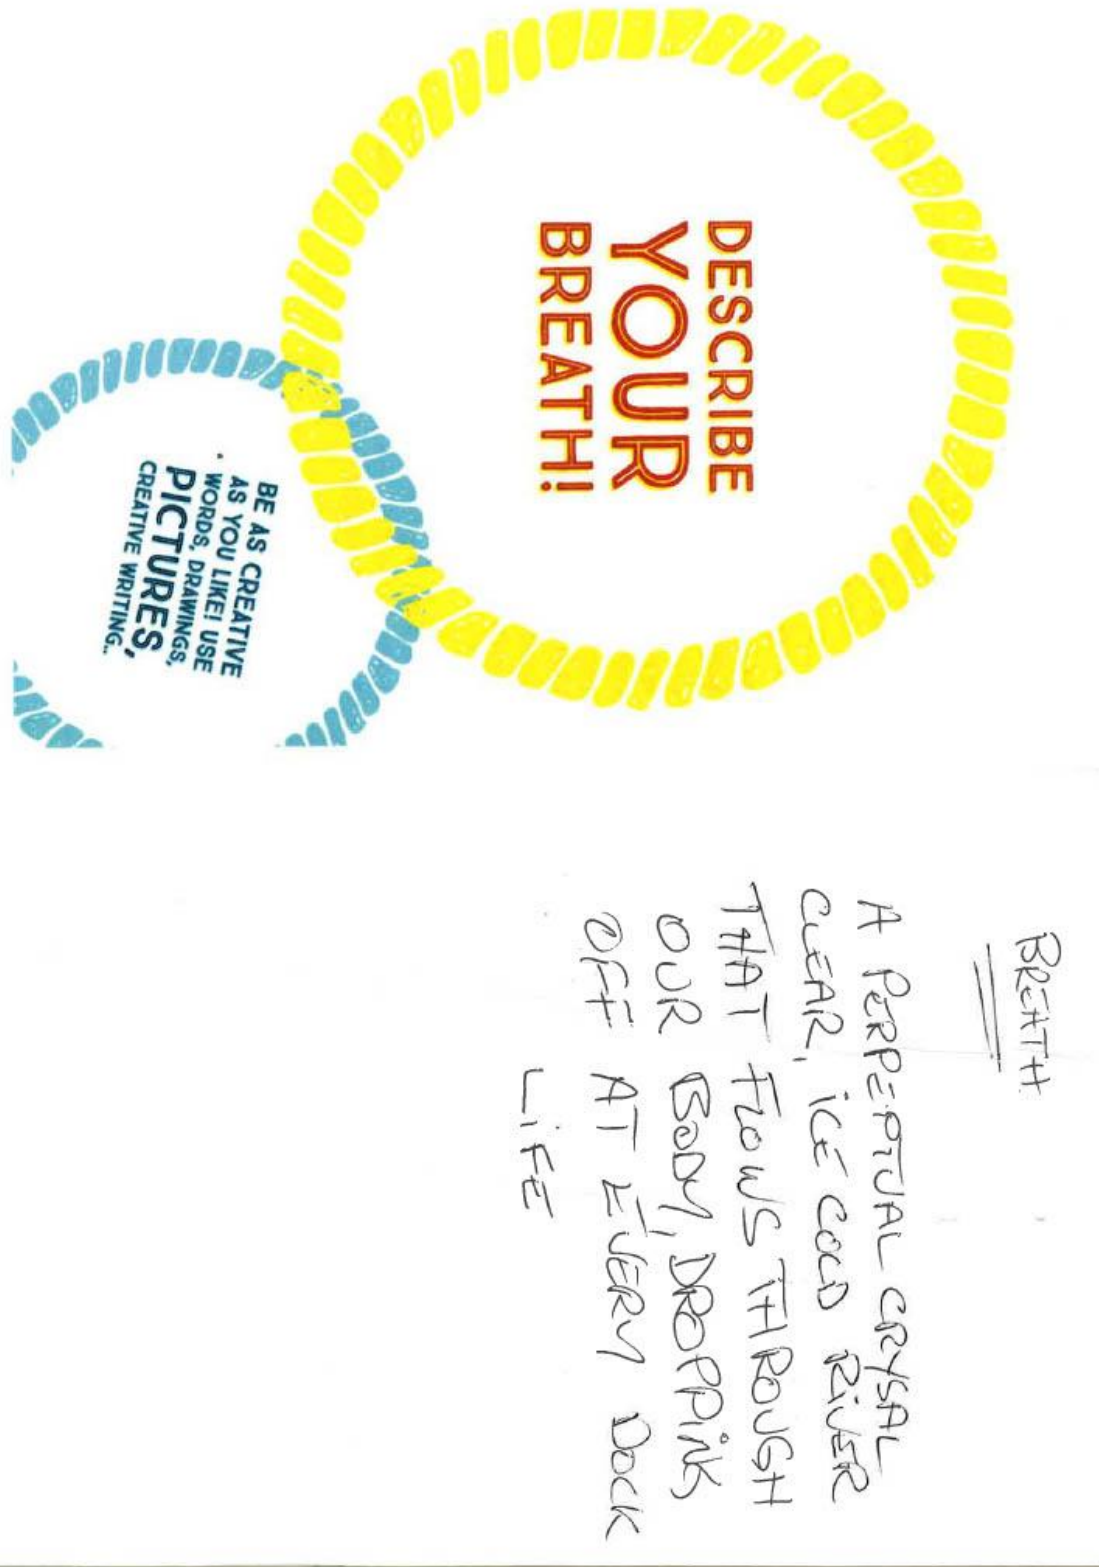 DESCRIBE
YOUR
BREATH!
BE AS CREATIVE
AS YOU LIKE! USE
WORDS, DRAWINGS,
PICTURES,
CREATIVE WRITING...
BREATH
A PERPEPTUAL CRYSAL
CLEAR, ICE COLD RIVER
THAT FLOWS THROUGH
OUR BODY, DROPPING
OFF AT EVERY DOCK
LIFE